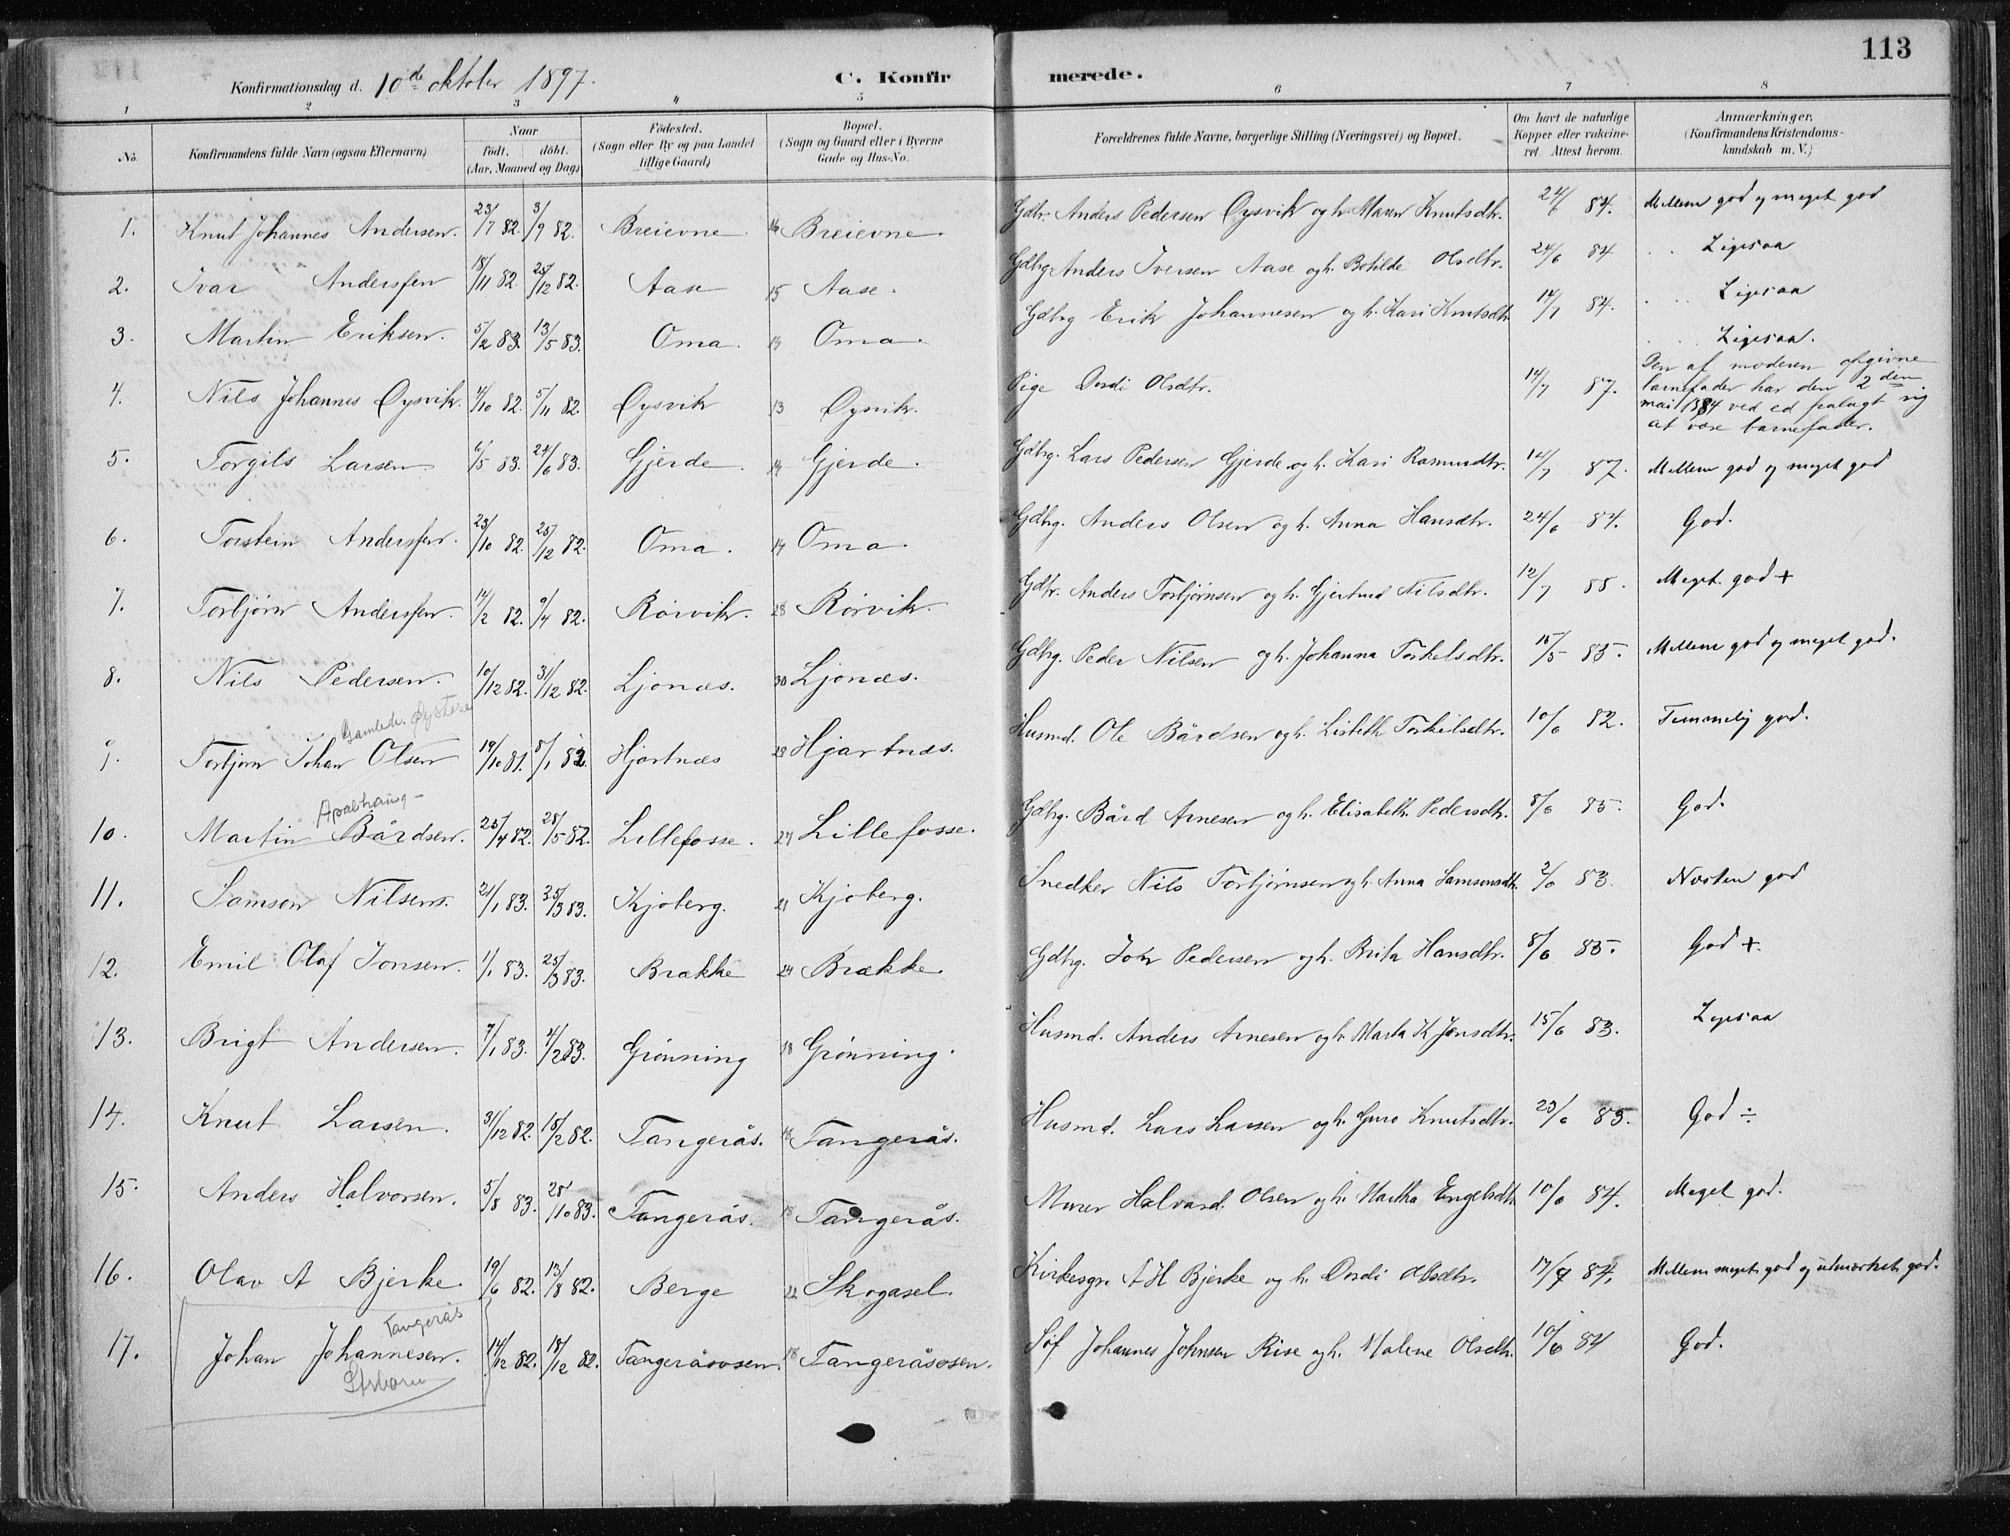 113
Konfirmationsdag d. 10de oktober 1897.
C. Konfirmerede.
1 2 3 4 5 6 7 8
No. Konfirmandens fulde Navn (ogsaa Efternavn) Naar født. døbt. (Aar, Maaned og Dag) Fødested. (Sogn eller By og paa Landet tillige Gaard) Bopæl. (Sogn og Gaard eller i Byerne Gade og Hus-No. Forældrenes fulde Navne, borgerlige Stilling (Næringsvei) og Bopæl. Om havt de naturlige Kopper eller vakcineret. Attest herom. Anmærkninger, (Konfirmandens Kristendomskundskab m. V.)
1. Knut Johannes Andersen. 23/7 82. 3/9 82. Breievne. 16 Breievne. Gdbr. Anders Pedersen Øysvik og h. Maren Knutsdtr. 24/6 84. Mellem god og meget god
2. Ivar Andersen 18/11 82. 25/12 82. Aase 15 Aase. Gdbrg Anders Iversen Aase og h. Botilde Olsdtr. 24/6 84 Ligesaa
3. Martin Eriksen. 5/2 83. 13/5 83. Oma. 13 Oma. Gdbrg Erik Johannesen og h. Kari Knutsdtr 14/7 84. Ligesaa
4. Nils Johannes Øysvik. 4/10 82. 5/11 82. Øysvik 13 Øysvik. Pige Dordi Olsdtr. 14/7 87. Ligesaa.
Den af moderen opgivne
barnefader har den 2den
mai 1884 ved ed fralagt sig
at være barnefader.
5. Torgils Larsen 6/5 83. 24/6 83. Gjerde. 14 Gjerde. Gdbrg. Lars Pedersen Gjerde og h. Kari Rasmusdtr. 14/7 87. Mellem god og meget god
6. Torstein Andersen. 23/10 82. 25/12 82. Oma. 14 Oma. Gdbrg. Anders Olsen og h. Anna Hansdtr. 24/6 84. God.
7. Torbjørn Andersen. 14/2 82. 9/4 82. Rørvik. 28 Rørvik. Gdbr. Anders Torbjørnsen og h. Gjertrud Nilsdtr. 12/7 88. Meget god +
8. Nils Pedersen. 10/12 82. 31/12 82. Ljonæs. 30 Ljonæs. Gdbrg. Peder Nilsen og h. Johanna Torkelsdtr. 15/5 85. Mellem god og meget god.
9. Torbjørn Johan Olsen 19/10 81. 8/1 82. Hjartnæs 29 Hjartnæs. Husmd. Ole Bårdsen og h. Lisbeth Torkilsdtr. 10/6 82. Temmelig god.
Apalhaug
10. Martin Bårdsen. 25/4 82. 28/5 82. Lillefosse. 27 Lillefosse. Gdbrg. Bård Arnesen og h. Elisabeth Pedersdtr. 8/6 85. God.
11. Samson Nilsen. 21/1 83. 25/3 83. Kjøberg. 21 Kjøberg. Snedker Nils Torbjørnsen og h. Anna Samsonsdtr. 2/6 83. Næsten god
12. Emil Olaf Jonsen. 1/1 83. 25/3 83. Brække 24 Brække. Gdbrg. Jon Pedersen og h. Brita Hansdtr. 8/6 85. God +.
13. Brigt Andersen. 7/1 83. 4/2 83. Grønning 18 Grønning. Husmd. Anders Arnesen og h. Marta K Jonsdtr. 15/6 83. Ligesaa
14. Knut Larsen. 31/12 82. 18/2 82. Tangerås. 18 Tangerås. Husmd. Lars Larsen og h. Guro Knutsdtr. 23/6 85. God ÷
15. Anders Halvorsen. 5/8 83. 28/10 83. Tangerås. 18 Tangerås. Murer Halvard Olsen og h. Martha Engelsdtr. 10/6 84. Meget god.
16. Olav A Bjerke 19/6 82. 13/8 82. Berge 22 Skogasel. Kirkesgr. A H Bjerke og h. Dordi Olsdtr. 17/9 84. Mellem meget god og udmerket god.
Tangerås
17. Johan Johannesen. 14/12 82. 18/12 82. Tangeråsosen. 18 Tangeråsosen. Søf Johannes Johnsen Rise og h. Malene Olsdtr. 10/6 84 God.